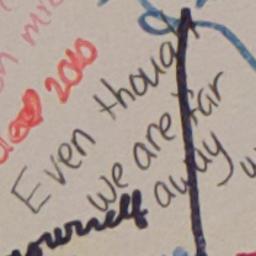 2010
Even though
we are far
away
yourself